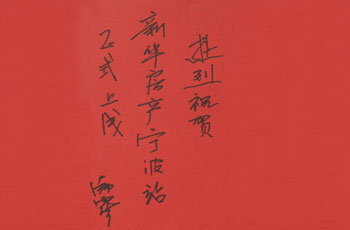 热烈祝贺
新华房产宁波站
正式上线